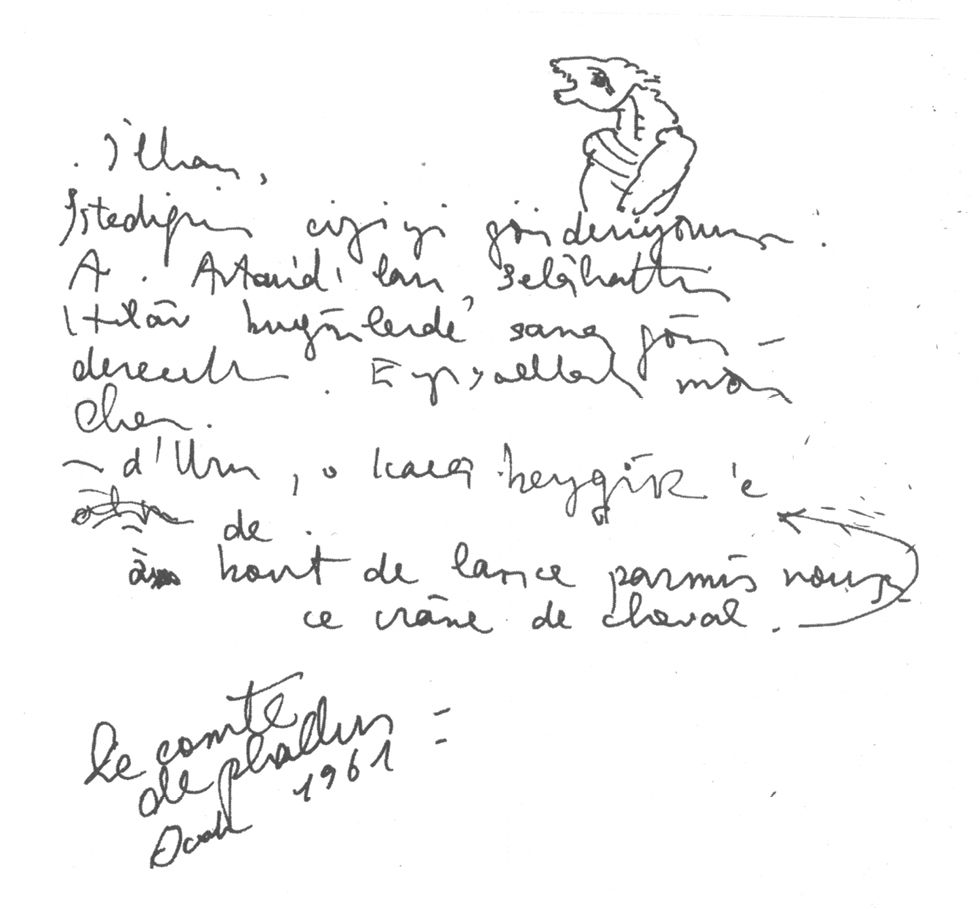 İlhan,
İstediğin çizi yi gönderiyorum.
A. Artaud'ları, Selâhattin
Hilâv bugünlerde sana gön-
derecektir. Eyvallah mon
cher.
d'Urm, o kara beygir'e
de.
à bout de lance parmis nous
ce crâne de cheval.
Le comte
de phallus
Ocak 1961